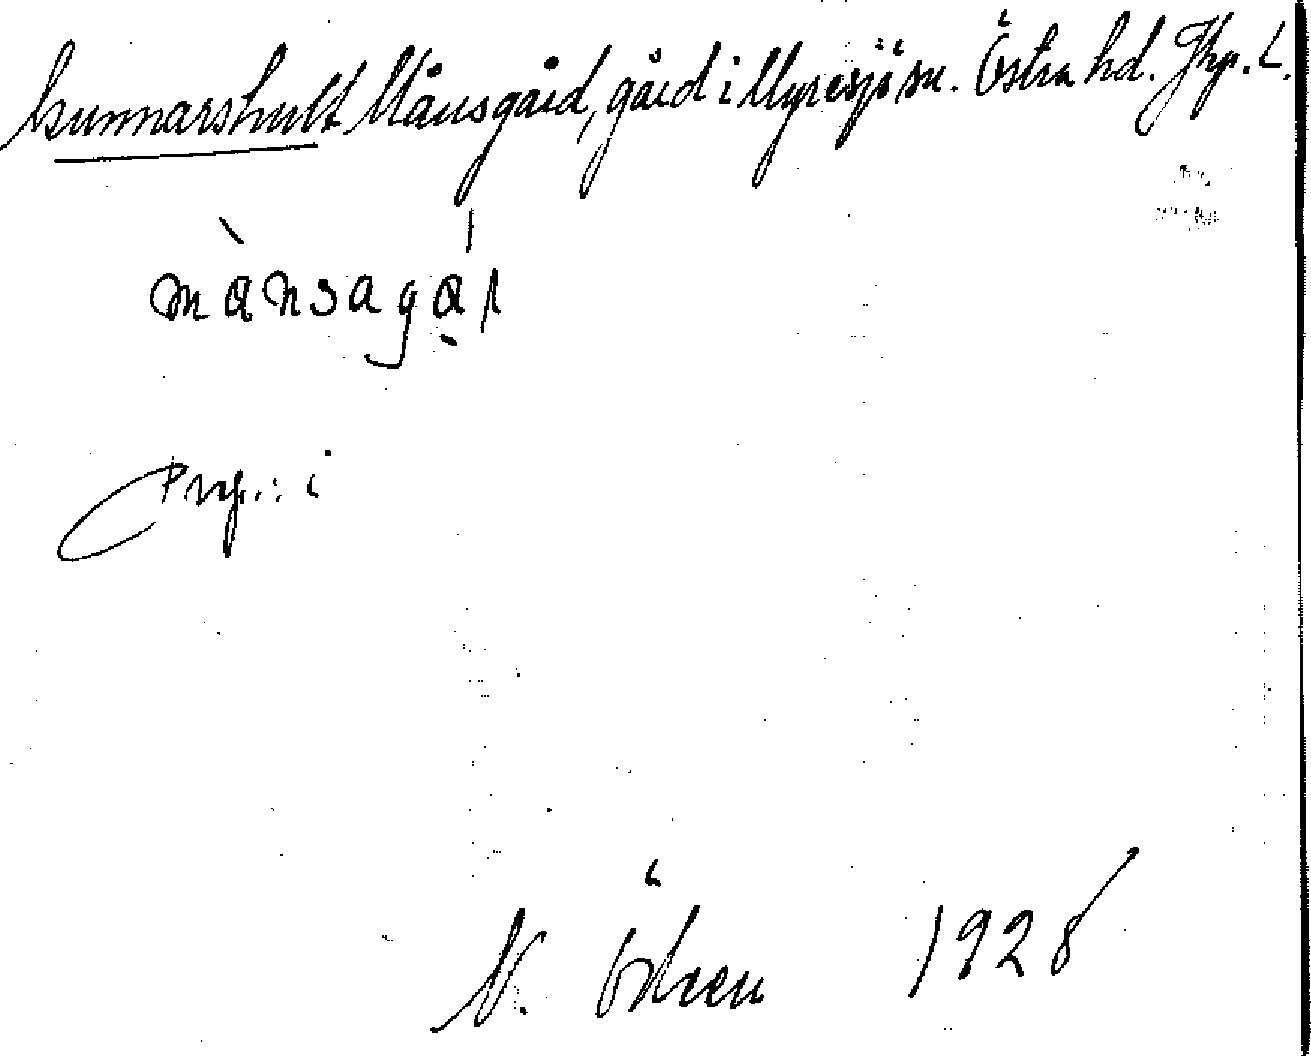 Gunnarshult Månsgård, gård i Myresjö sn. Östra hd. Jkp. L.
mànsagál
Prep.: i
N. Ödeen 1928